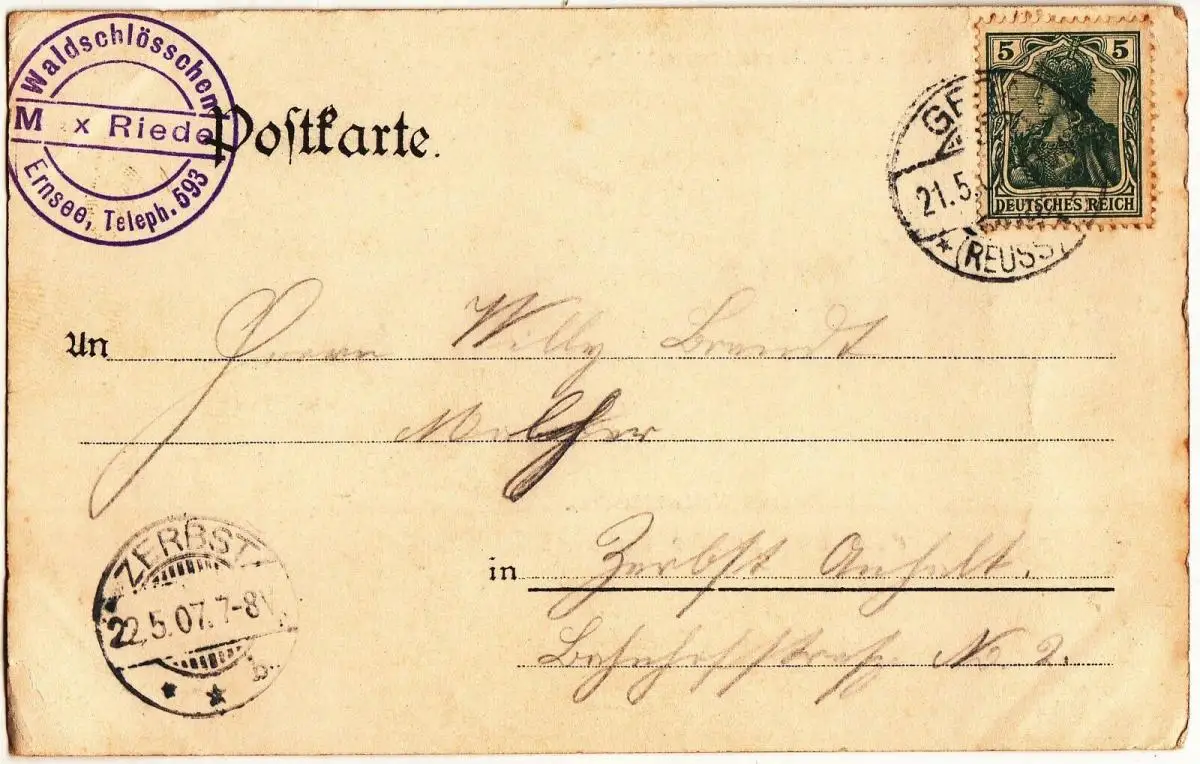 Waldschlösschen
M x Riede
Ernsee, Teleph. 593
Postkarte.
5 5
DEUTSCHES REICH
GE
21.5
(REUSS)
An Herrn Willy Brandt
in Zerbst Anhalt.
Bahnhofstraße No 2.
ZERBST
22.5.07.7-8V.
b.